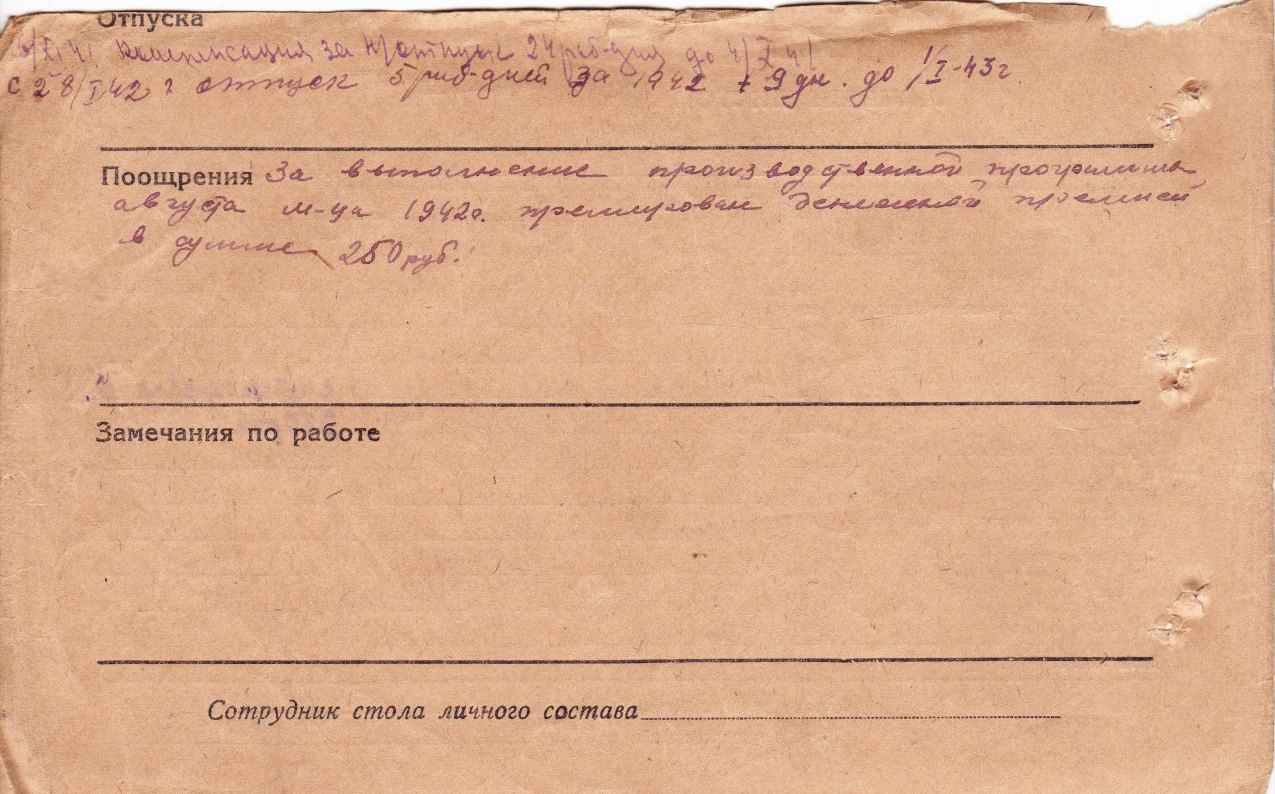 Отпуска
/XI 41 компенсация за н/отпуск 24 раб-дня до 4/X 41
с 28/I 42 г отпуск 5 раб-дней за 1942 + 9 дн. до 1/I-43 г.
Поощрения За выполнение производственной программы
августа м-ца 1942г. премирован денежной премией
в сумме 250 руб.
Замечания по работе
Сотрудник стола личного состава